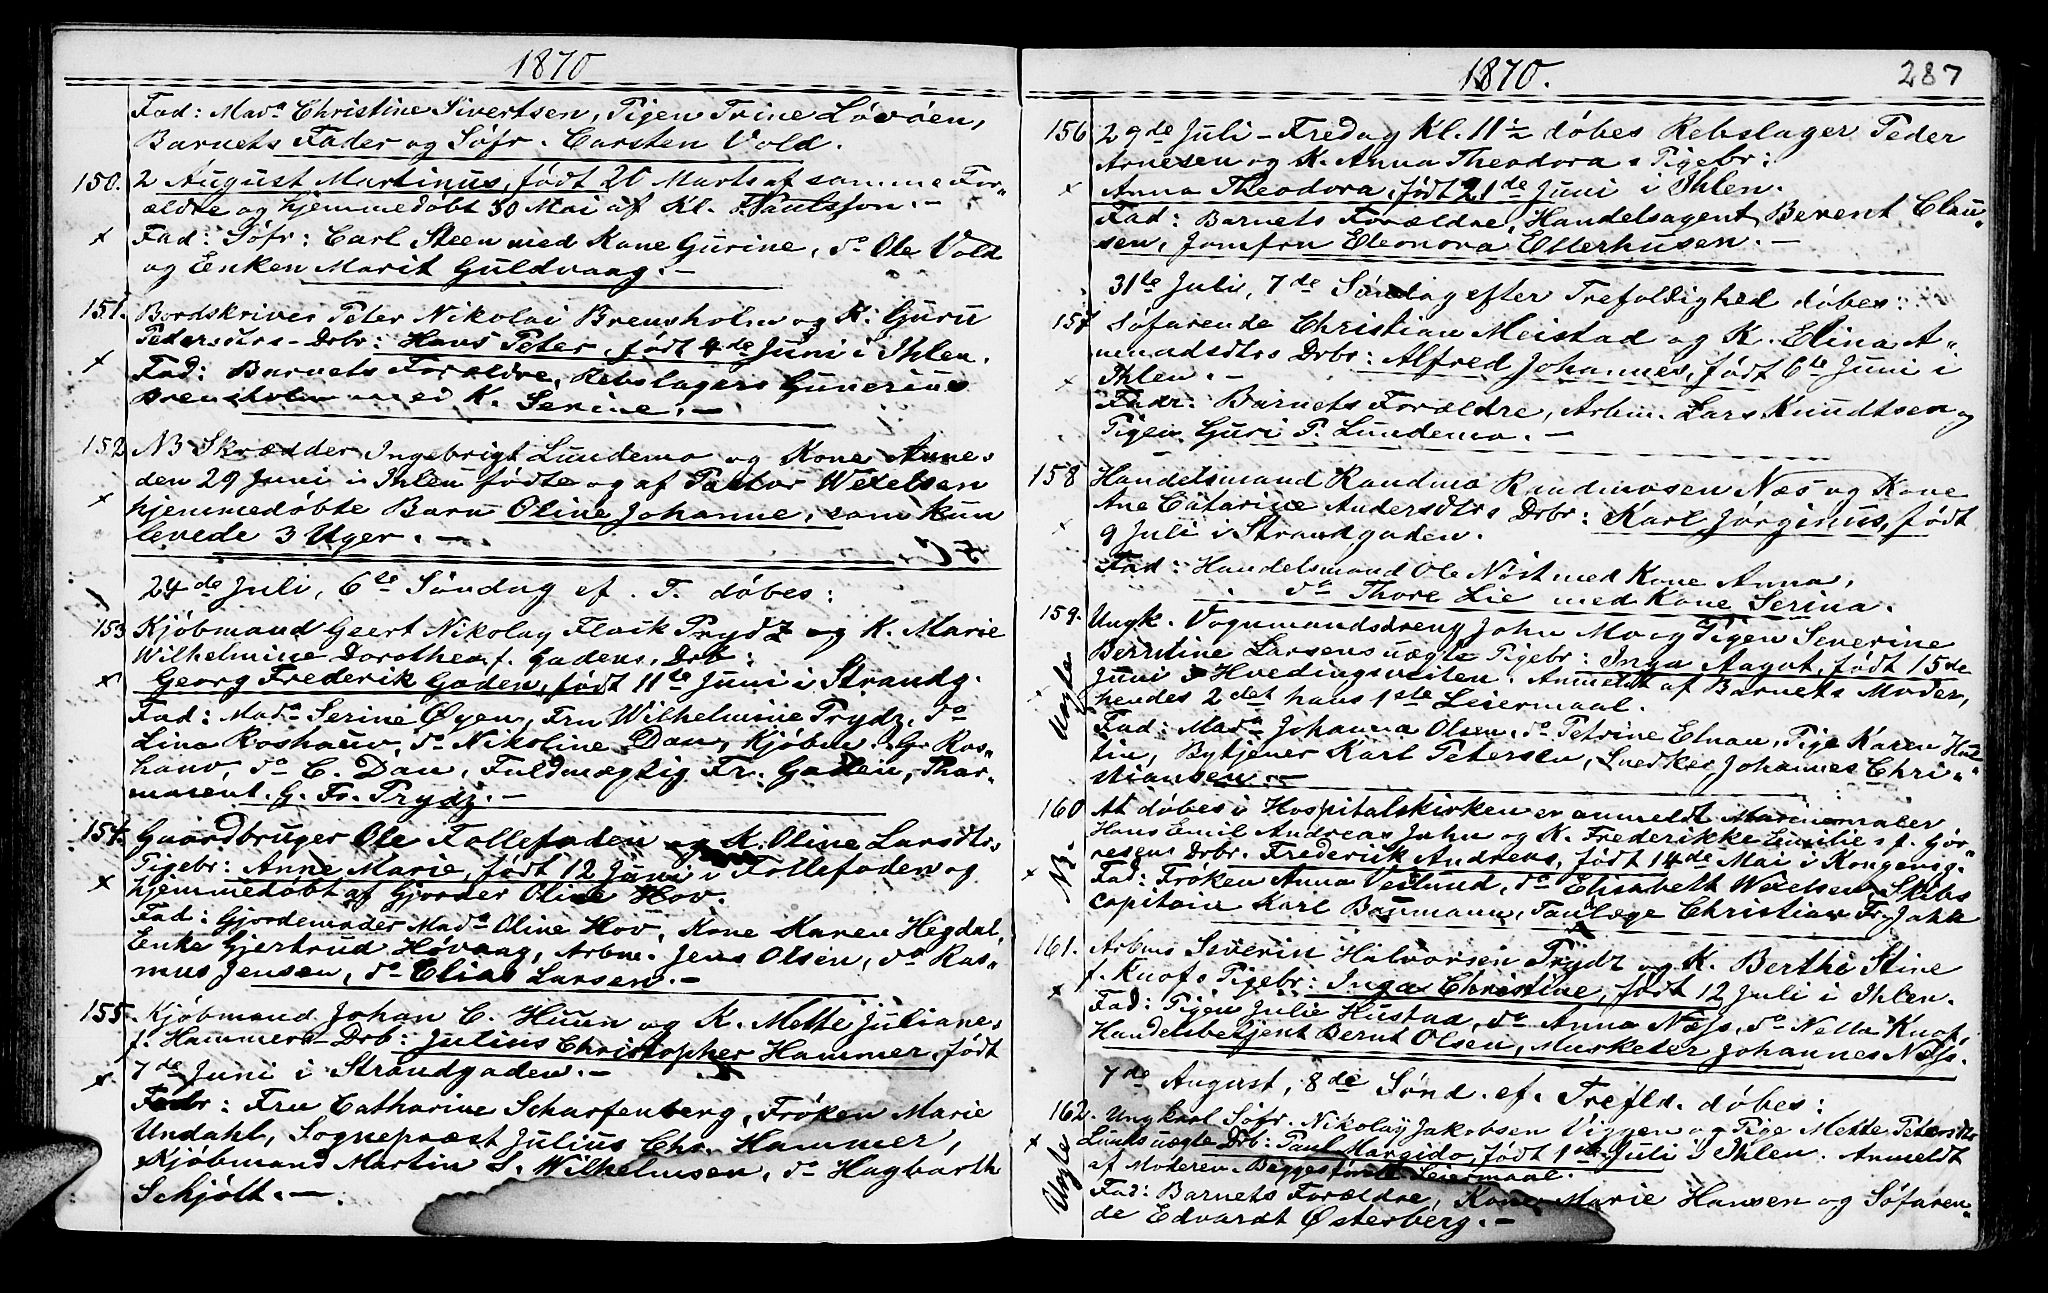 1870
Fad: Mad<sup>a</sup> Christine Sivertsen, Pigen Trine Lovöen,
Barnets Fader og Söfr. Carsten Vold.
150. 2 August Martinus, født 20 Marts af samme For-
ældre og hjemmedøbt 30 Mai af Kl. Paulsson. -
x Fad: Söfr: Carl Steen med Kone Gurine, d<sup>o</sup> Ole Vold
og Enken Marit Guldvaag. -
151. Bordskriver Peter Nikolai Brensholm og K. Guru
Pedersdrs - Drbr: Hans Peter, født 4de Juni i Ihlen.
x Fad: Barnets Forældre, Rebslager Gunerius
Brensholm med K. Serine. -
152 NB Skrædder Ingebrigt Lundemo og Kone Annes
den 29 Juni i Ihlen fødte og af Pastor Wexelsen
x hjemmedøbte Barn Oline Johanne, som kun
levede 3 Uger. -
24de Juli, 6te Søndag ef. T. døbes:
153 Kjøbmand Geert Nikolay Flock Prydz og K. Marie
Wilhelmine Dorothea f. Gadens, Drb:
x Georg Frederik Gaden, født 11te Juni i Strandg.
Fad: Mad<sup>a</sup> Serine Øyen, Fru Wilhelmine Prydz, d<sup>o</sup>
Lina Roshauw, d<sup>o</sup> Nikoline Dan, Kjøbm. G. Ros-
hauw, d<sup>o</sup> C. Dan, Fuldmægtig Fr. Gaden, Thar-
maceut. G. Fr. Prydz. -
154. Gaardbruger Ole Tollefoden og K. Oline Larsdtrs
Pigebr: Anne Marie, født 12 Juni i Tollefoden og
x hjemmedøbt af Gjorder Oline Hov.
Fad: Gjordemoder Mad<sup>a</sup> Oline Hov, Kone Karen Hegdal,
Enke Gjertrud Høvaag, Arbm. Jens Olsen, d<sup>o</sup> Ras-
mus Jensen, d<sup>o</sup> Elias Larsen. -
155. Kjøbmand Johan C. Huun og K. Mette Julianes
f. Hammers Drb: Julius Christopher Hammer, født
x 7de Juni i Strandgaden. -
Fadr: Fru Catharine Scharfenberg, Frøken Marie
Undahl, Sognepræst Julius Chr. Hammer,
Kjøbmand Martin S. Wilhelmsen, d<sup>o</sup> Hagbarth
Schjött. -
1870. 287
156 29de Juli - Fredag Kl. 11½ døbes Rebslager Peder
Arnesen og K. Anna Theodora s Pigebr:
x Anna Theodora, født 21de Juni i Ihlen.
Fad: Barnets Forældre, Handelsagent Berent Clau-
sen, Jomfru Eleonora Ellerhusen. -
31te Juli, 7de Søndag efter Trefoldighed døbes:
157 Søfarende Christian Meistad og K. Elina A-
mundsdtrs Drbr: Alfred Johannes, født 6te Juni i
x Ihlen. -
Fadr: Barnets Forældre, Arbm. Lars Knudtsen og
Pigen Guri P. Lundemo. -
158 Handelsmand Randmo Randmosen Næs og Kone
Ane Catarine Andersdtrs Drbr: Karl Jørginus, født
x 9 Juli i Strandgaden.
Fad: Handelsmand Ole Nöst med Kone Anna,
d<sup>o</sup> Thore Lie med Kone Serina.
159. Ungk. Vognmandsdreng John Mo og Pigen Severine
Berntine Larsens uægte Pigebr: Inga Aagot, født 15de
x Uægte Juni i Hvedingsveiten. Anmeldt af Barnets Moder,
hendes 2det hans 1ste Leiermaal.
Fad: Mad<sup>a</sup> Johanna Olsen, d<sup>o</sup> Petrine Elnan, Pige Karen Hul-
tin, Bytjener Karl Petersen, Snedker Johannes Chri-
stiansen. -
160 At døbes i Hospitalskirken er anmeldt Marinemaler
Hans Emil Andreas Jahn og K. Frederikke Emilies f. Gör-
x NB. resens Drbr. Frederik Andreas, født 14de Mai i Kongensg.
Fad: Frøken Anna Veslund, d<sup>o</sup> Elisabeth Wexelsen, Skibs
capitain Karl Baumann, Tanlæge Christian Fr. Jahn
161. Arbm. Severin Halvorsen Prydz og K. Berthe Stine
f. Knofs Pigebr: Inga Christine, født 12 Juli i Ihlen.
x Fad: Pigen Julie Hustad, d<sup>o</sup> Anna Næss, d<sup>o</sup> Nella Knof,
Handelsbetjent Bernt Olsen, Musketer Johannes Næss.
7de August, 8de Sønd. ef. Trefld. døbes:
162. Ungkarl Söfr. Nikolay Jakobsen Viggen og Pige Mette Petersdtr
x Uægte Lunds uægte Drb: Paul Margido, født 1ste Juli i Ihlen. Anmeldt
af Moderen. Begges første Leiermaal.
Fad: Barnets Forældre, Kone Marie Hansen og Söfaren-
de Edvardt Østerberg. -